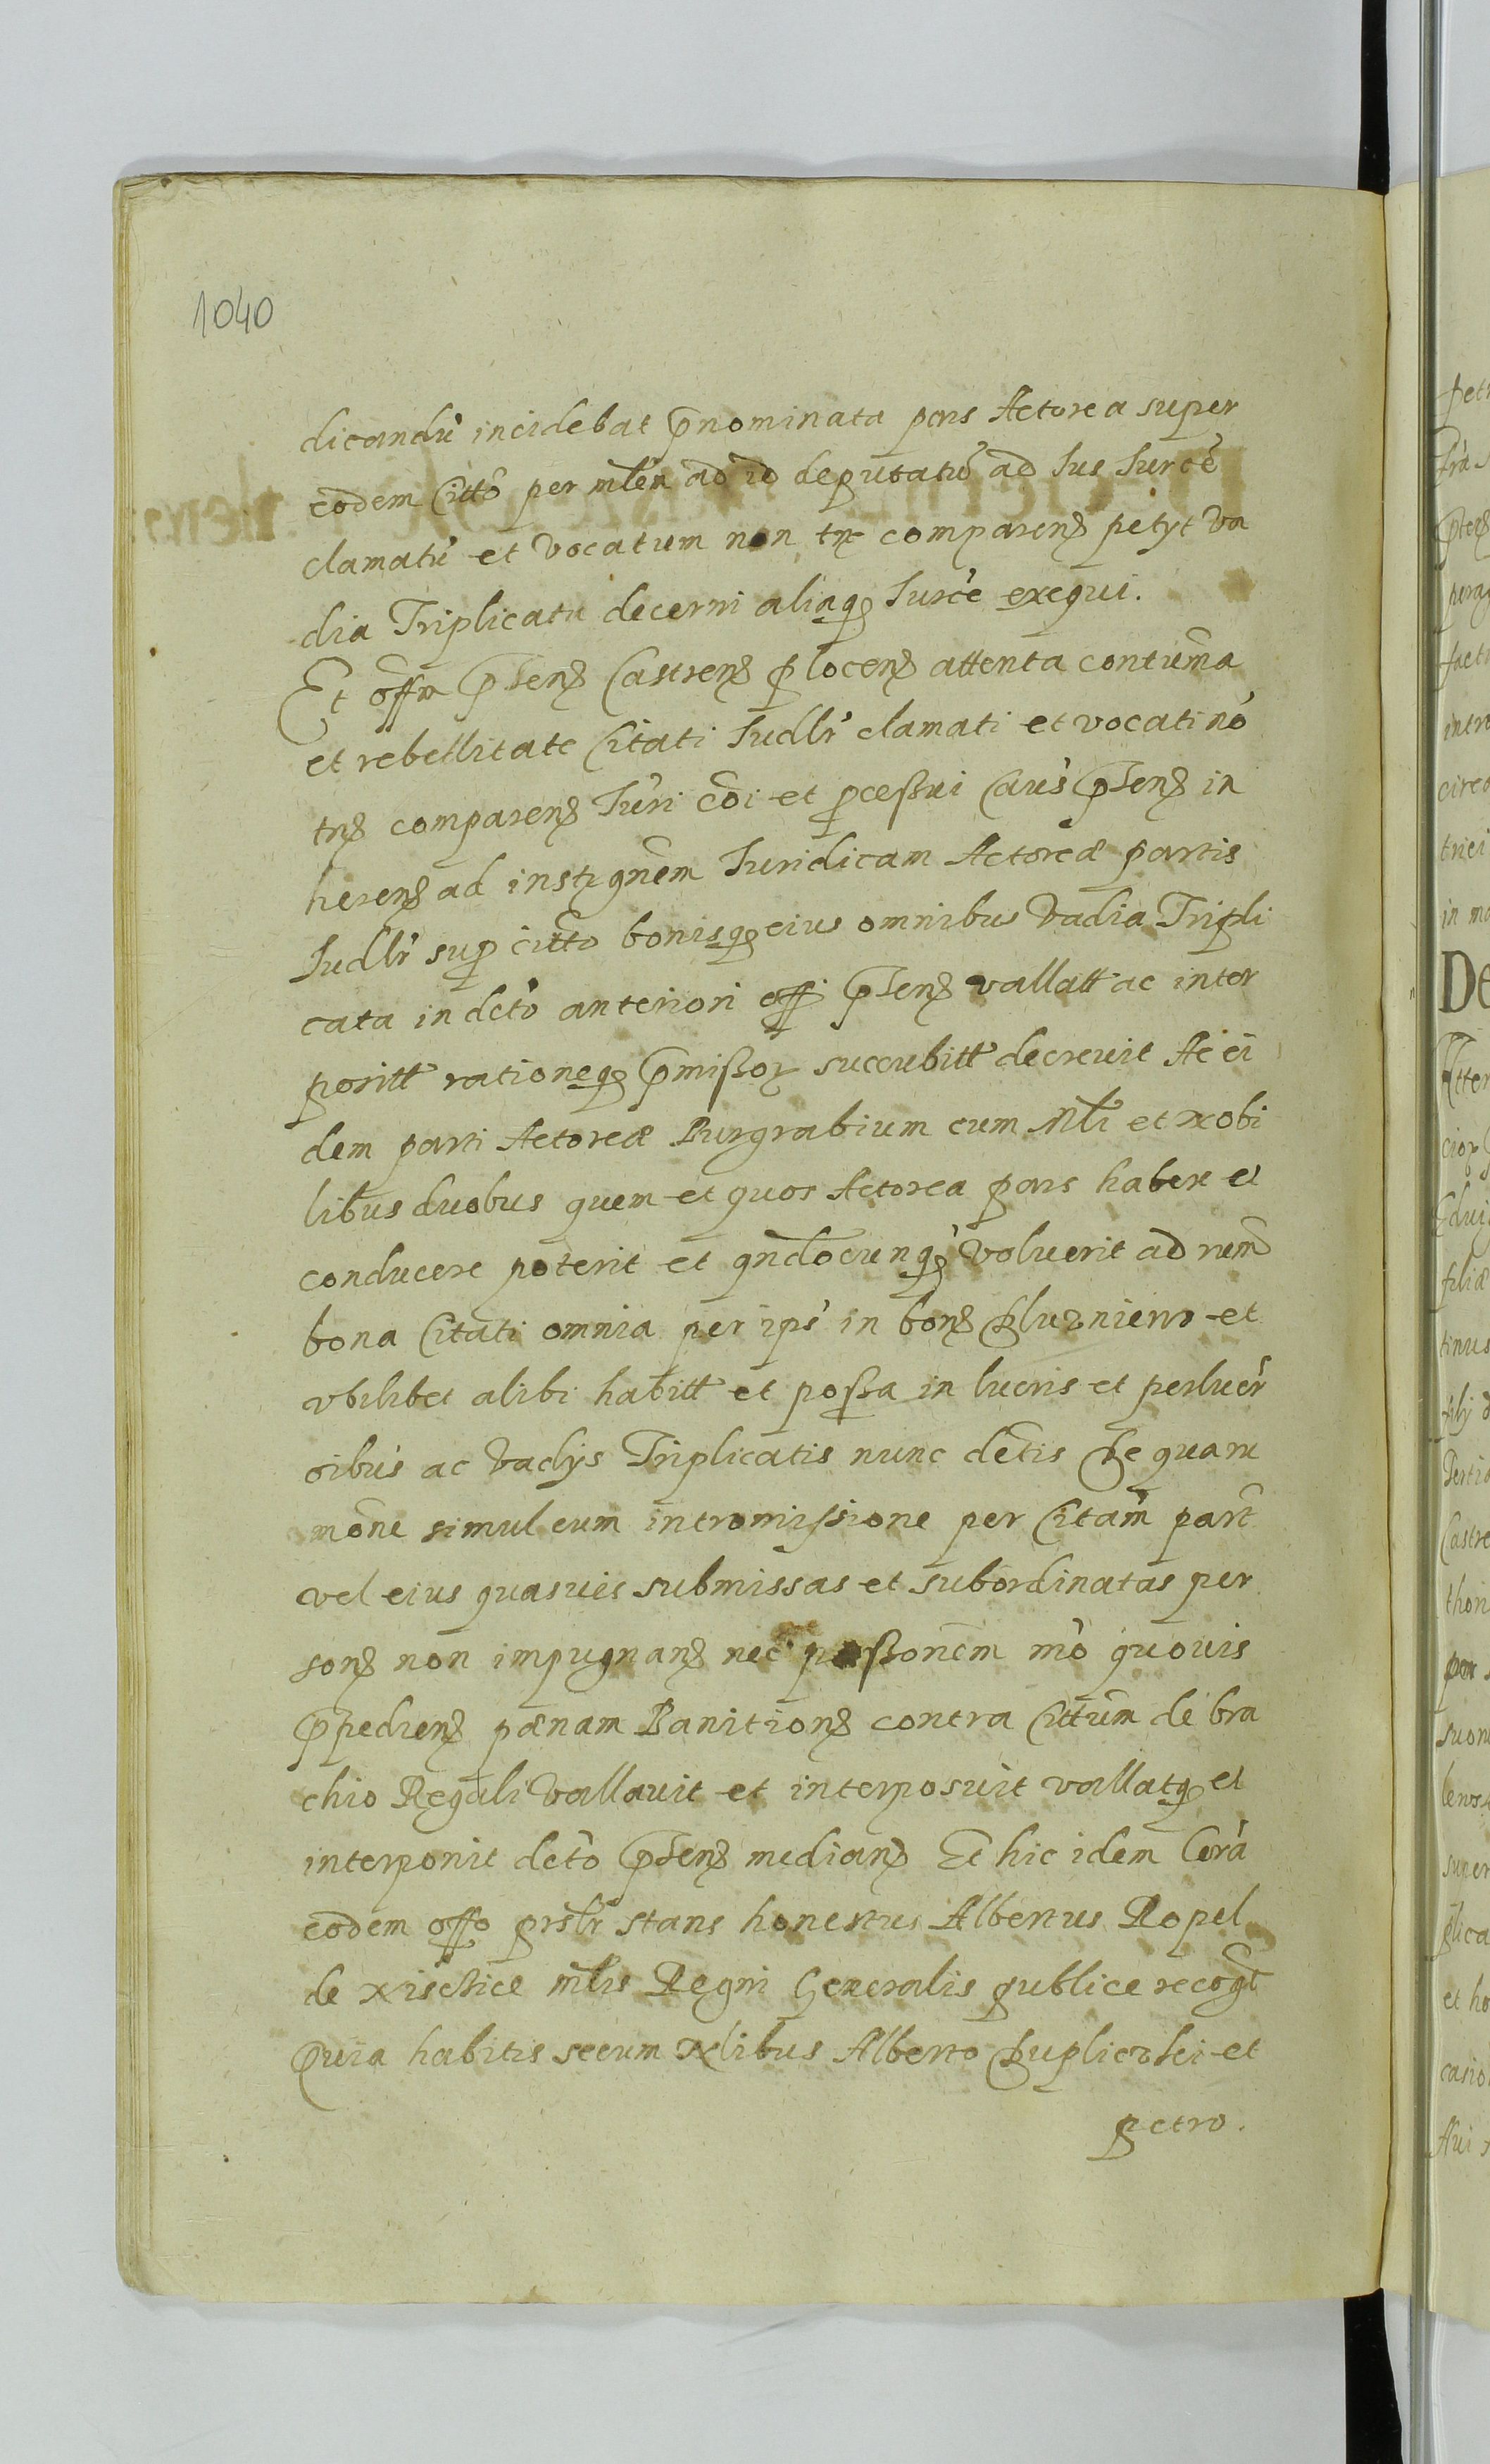 1040
dicandū incidebat p̄nominata pars Actorea super
eodem Citto per mlēm ad id deputatū ad Jus Jurcē
clamatū et vocatum non tn̄ comparen petyt Va
dia Triplicata decerni aliaq Jurcē exequi.
Et offm p̄sens Castren plocen attenta contum̄a
et rebellitate Citati Judlr clamati et vocati nō
tn̄ comparen Juri cōi et pceßui Caus p̄sens in
heren ad instignēm Juridicam Actoreæ partis
Judlr sup citto bonisq eius omnibus Vadia Tripli
cata in dctō anteriori offi p̄sens vallatt ac inter
positt rationeq p̄mißor succubitt decrevit Ac ei
dem parti Actoreæ Burgrabium cum Mlī et Nobi
libus duobus quem et quos Actorea pars habere et
conducere poterit et qndocunq voluerit ad
bona Citati omnia per ips in bons et
vbilibet alibi habitt et poßa in lucris et perlucr
oibus ac Vadys Triplicatis nunc dctis De quam
mōne simul cum intromissione per Citam̄ part
vel eius quasuis submissas et subordinatas per
sons non impugnan nec poßonēm mō quovis
p̄pedien pænam Banitions contra Cittum de bra
chio Regali Vallavit et interposuit vallatq et
interponit dctō p̄sens median Et hic idem Corā
eodem offo prslr stans honestus Albertus Ropel
de mlis Regni Generalis publice recogt
Quia habitis secum Nlibus Alberto et
petro.